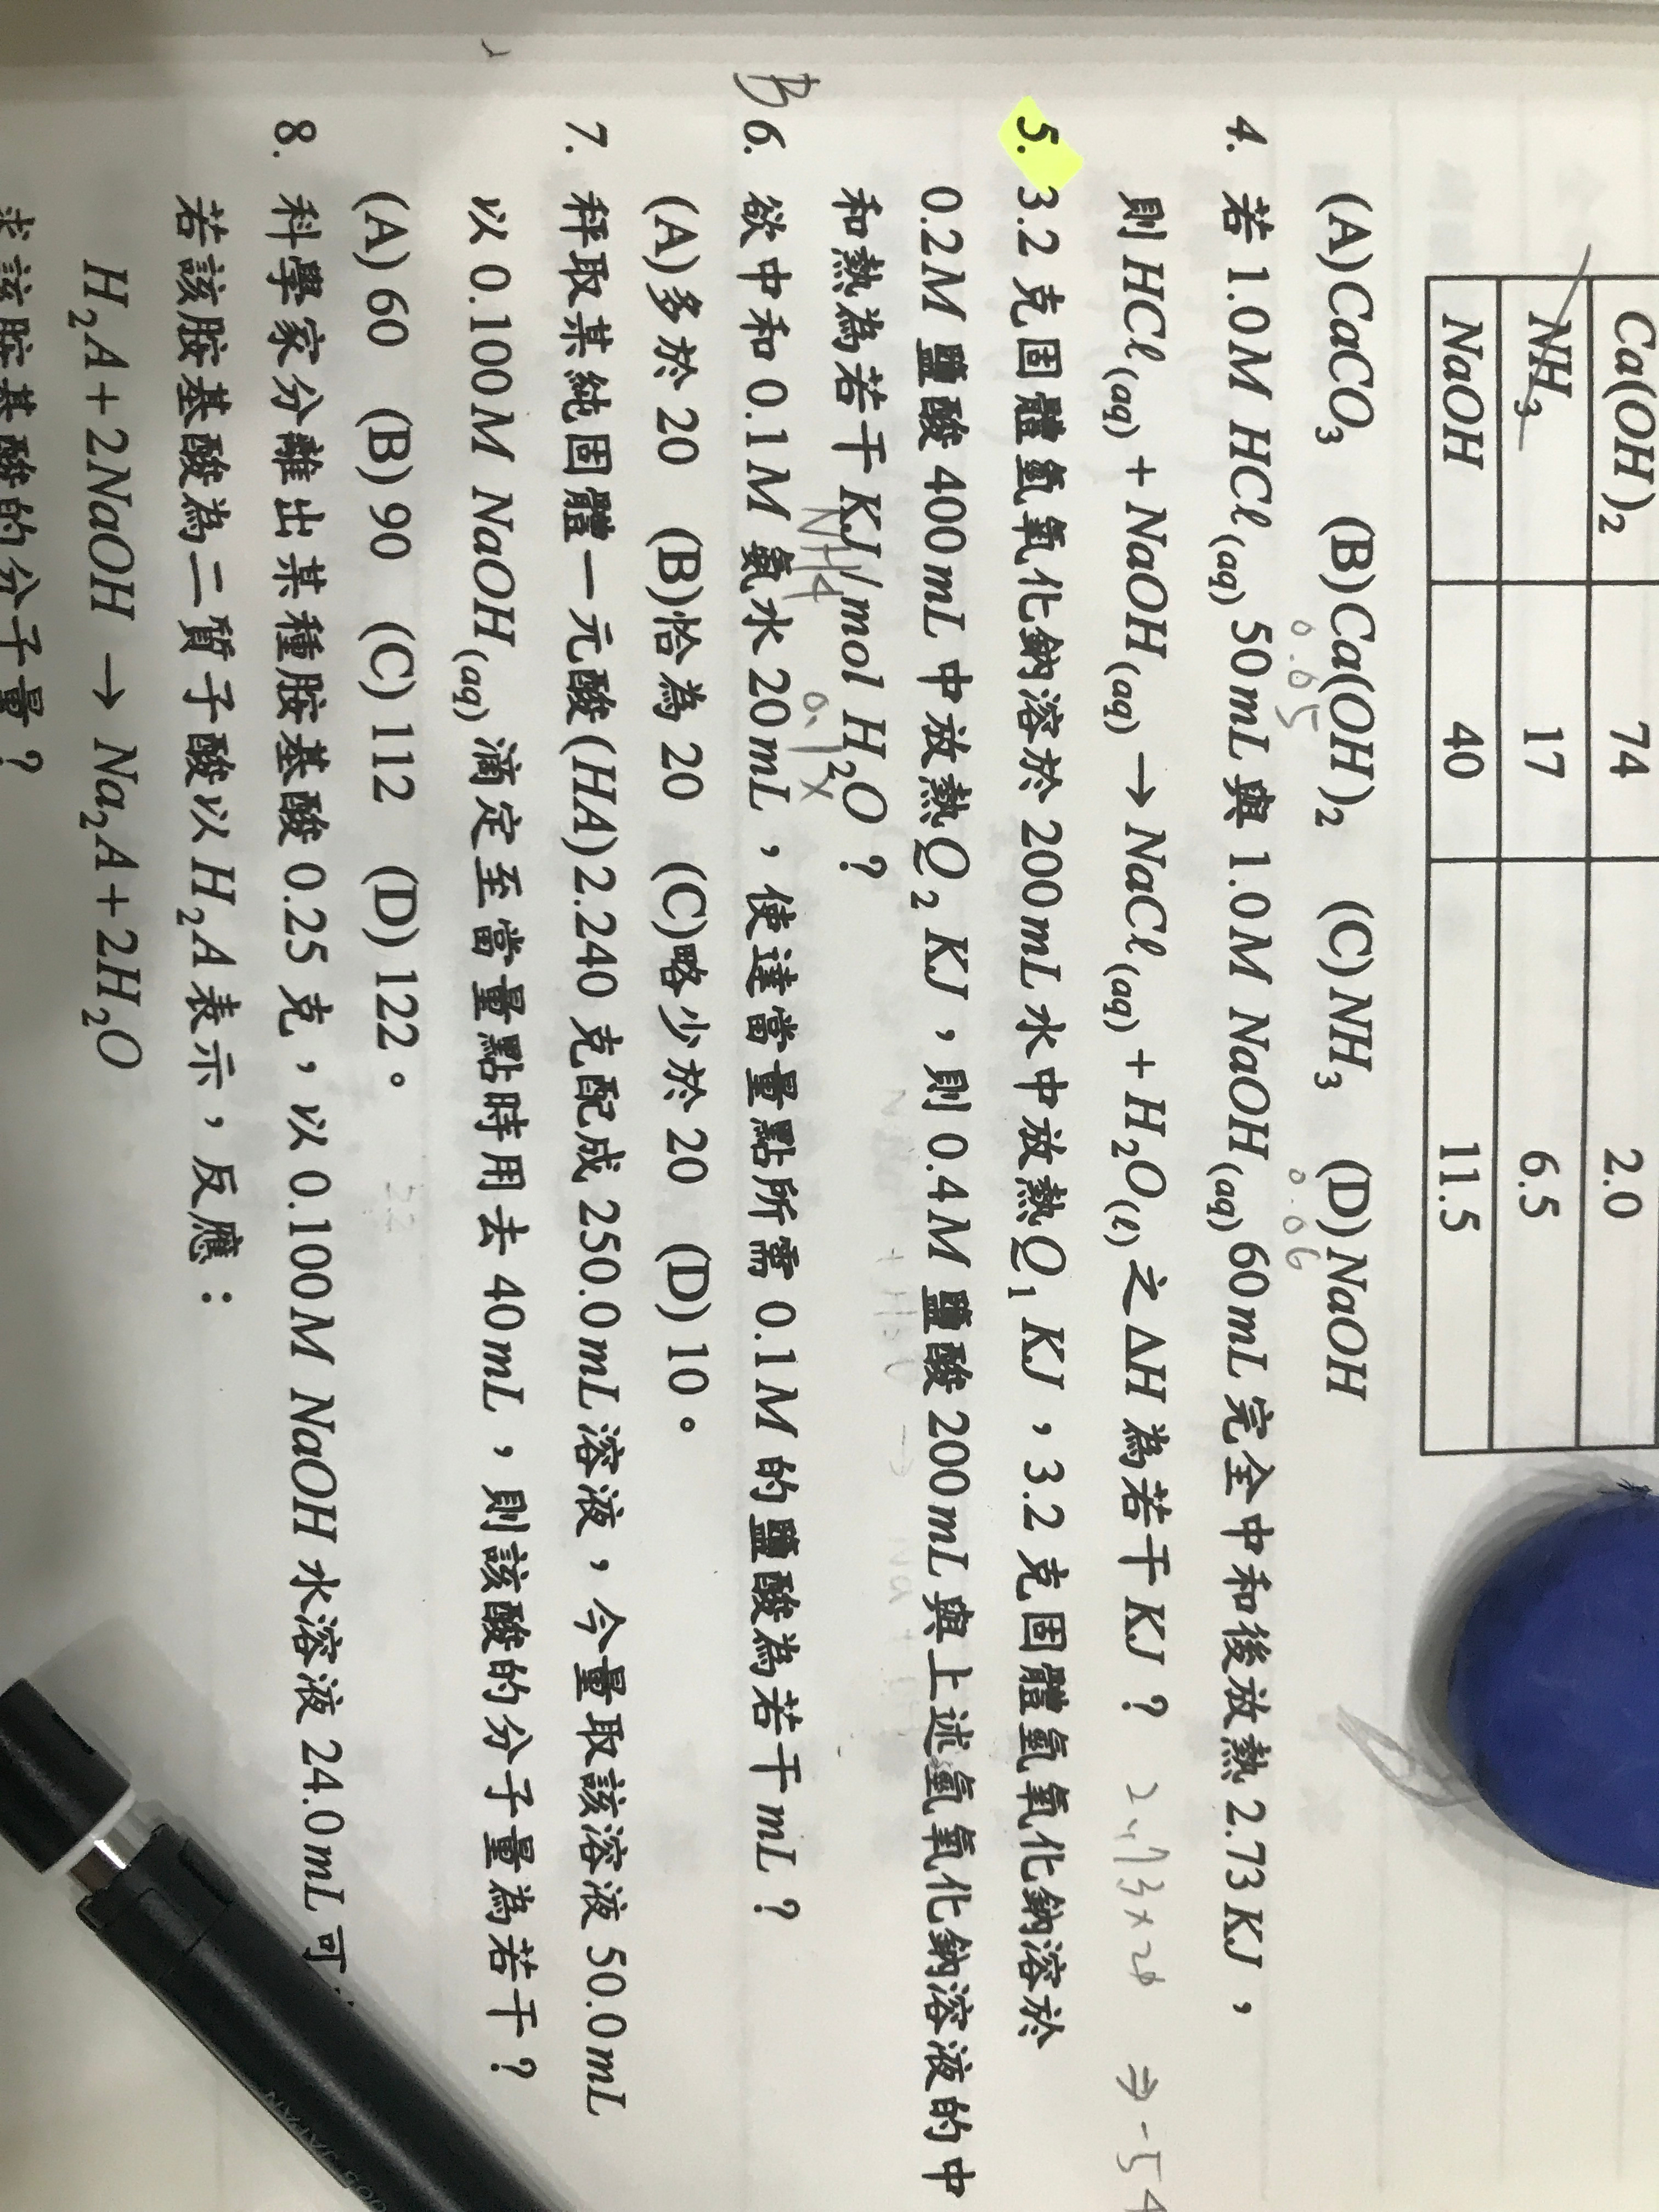 Ca(OH)₂ 74 2.0
NH₃ 17 6.5
NaOH 40 11.5
(A)CaCO₃ (B)Ca(OH)₂ (C)NH₃ (D)NaOH
0.05 0.06
4. 若1.0M HCl(aq)50mL與1.0M NaOH(aq)60mL完全中和後放熱2.73KJ，
則HCl(aq)+NaOH(aq)→NaCl(aq)+H₂O(l)之ΔH為若干KJ？ 2.73×20 ⇒-54
5. 3.2克固體氫氧化鈉溶於200mL水中放熱Q₁KJ，3.2克固體氫氧化鈉溶於
0.2M鹽酸400mL中放熱Q₂KJ，則0.4M鹽酸200mL與上述氫氧化鈉溶液的中
和熱為若干KJ/mol H₂O？
NH4 0.1x
B 6. 欲中和0.1M氨水20mL，使達當量點所需0.1M的鹽酸為若干mL？
(A)多於20 (B)恰為20 (C)略少於20 (D)10。
7. 秤取某純固體一元酸(HA)2.240克配成250.0mL溶液，今量取該溶液50.0mL
以0.100M NaOH(aq)滴定至當量點時用去40mL，則該酸的分子量為若干？
(A)60 (B)90 (C)112 (D)122。
8. 科學家分離出某種胺基酸0.25克，以0.100M NaOH水溶液24.0mL可
若該胺基酸為二質子酸以H₂A表示，反應：
H₂A+2NaOH → Na₂A+2H₂O
求該胺基酸的分子量？
JAPAN